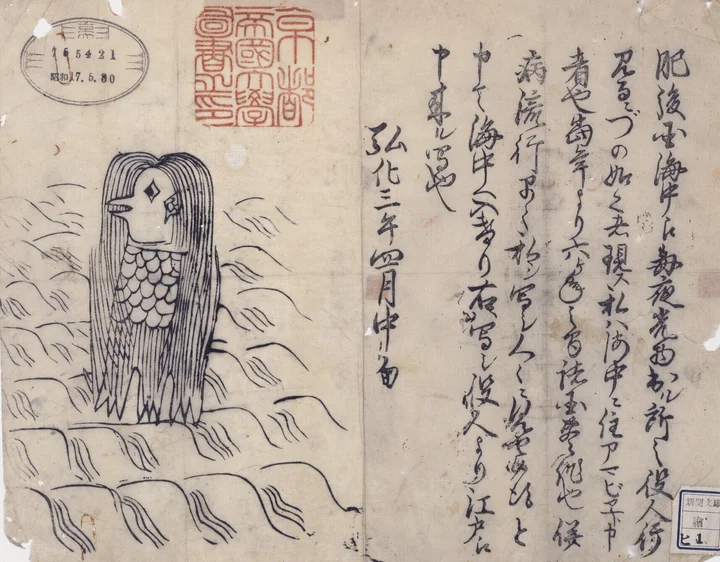 肥後国海中え毎夜光物出ル所之役人行
見るニづの如く者現ス私ハ海中ニ住アマビヱト申
者也當年より六ヶ年之間諸国豊作也併
病流行早々私ヲ写シ人々ニ見セ候得と
申て海中へ入けり右写シ役人より江戸え
申来ル写也
弘化三年四月中旬
京都
帝國大學
圖書之印
昭和17.5.30
新聞文庫
繪
ヒ 1